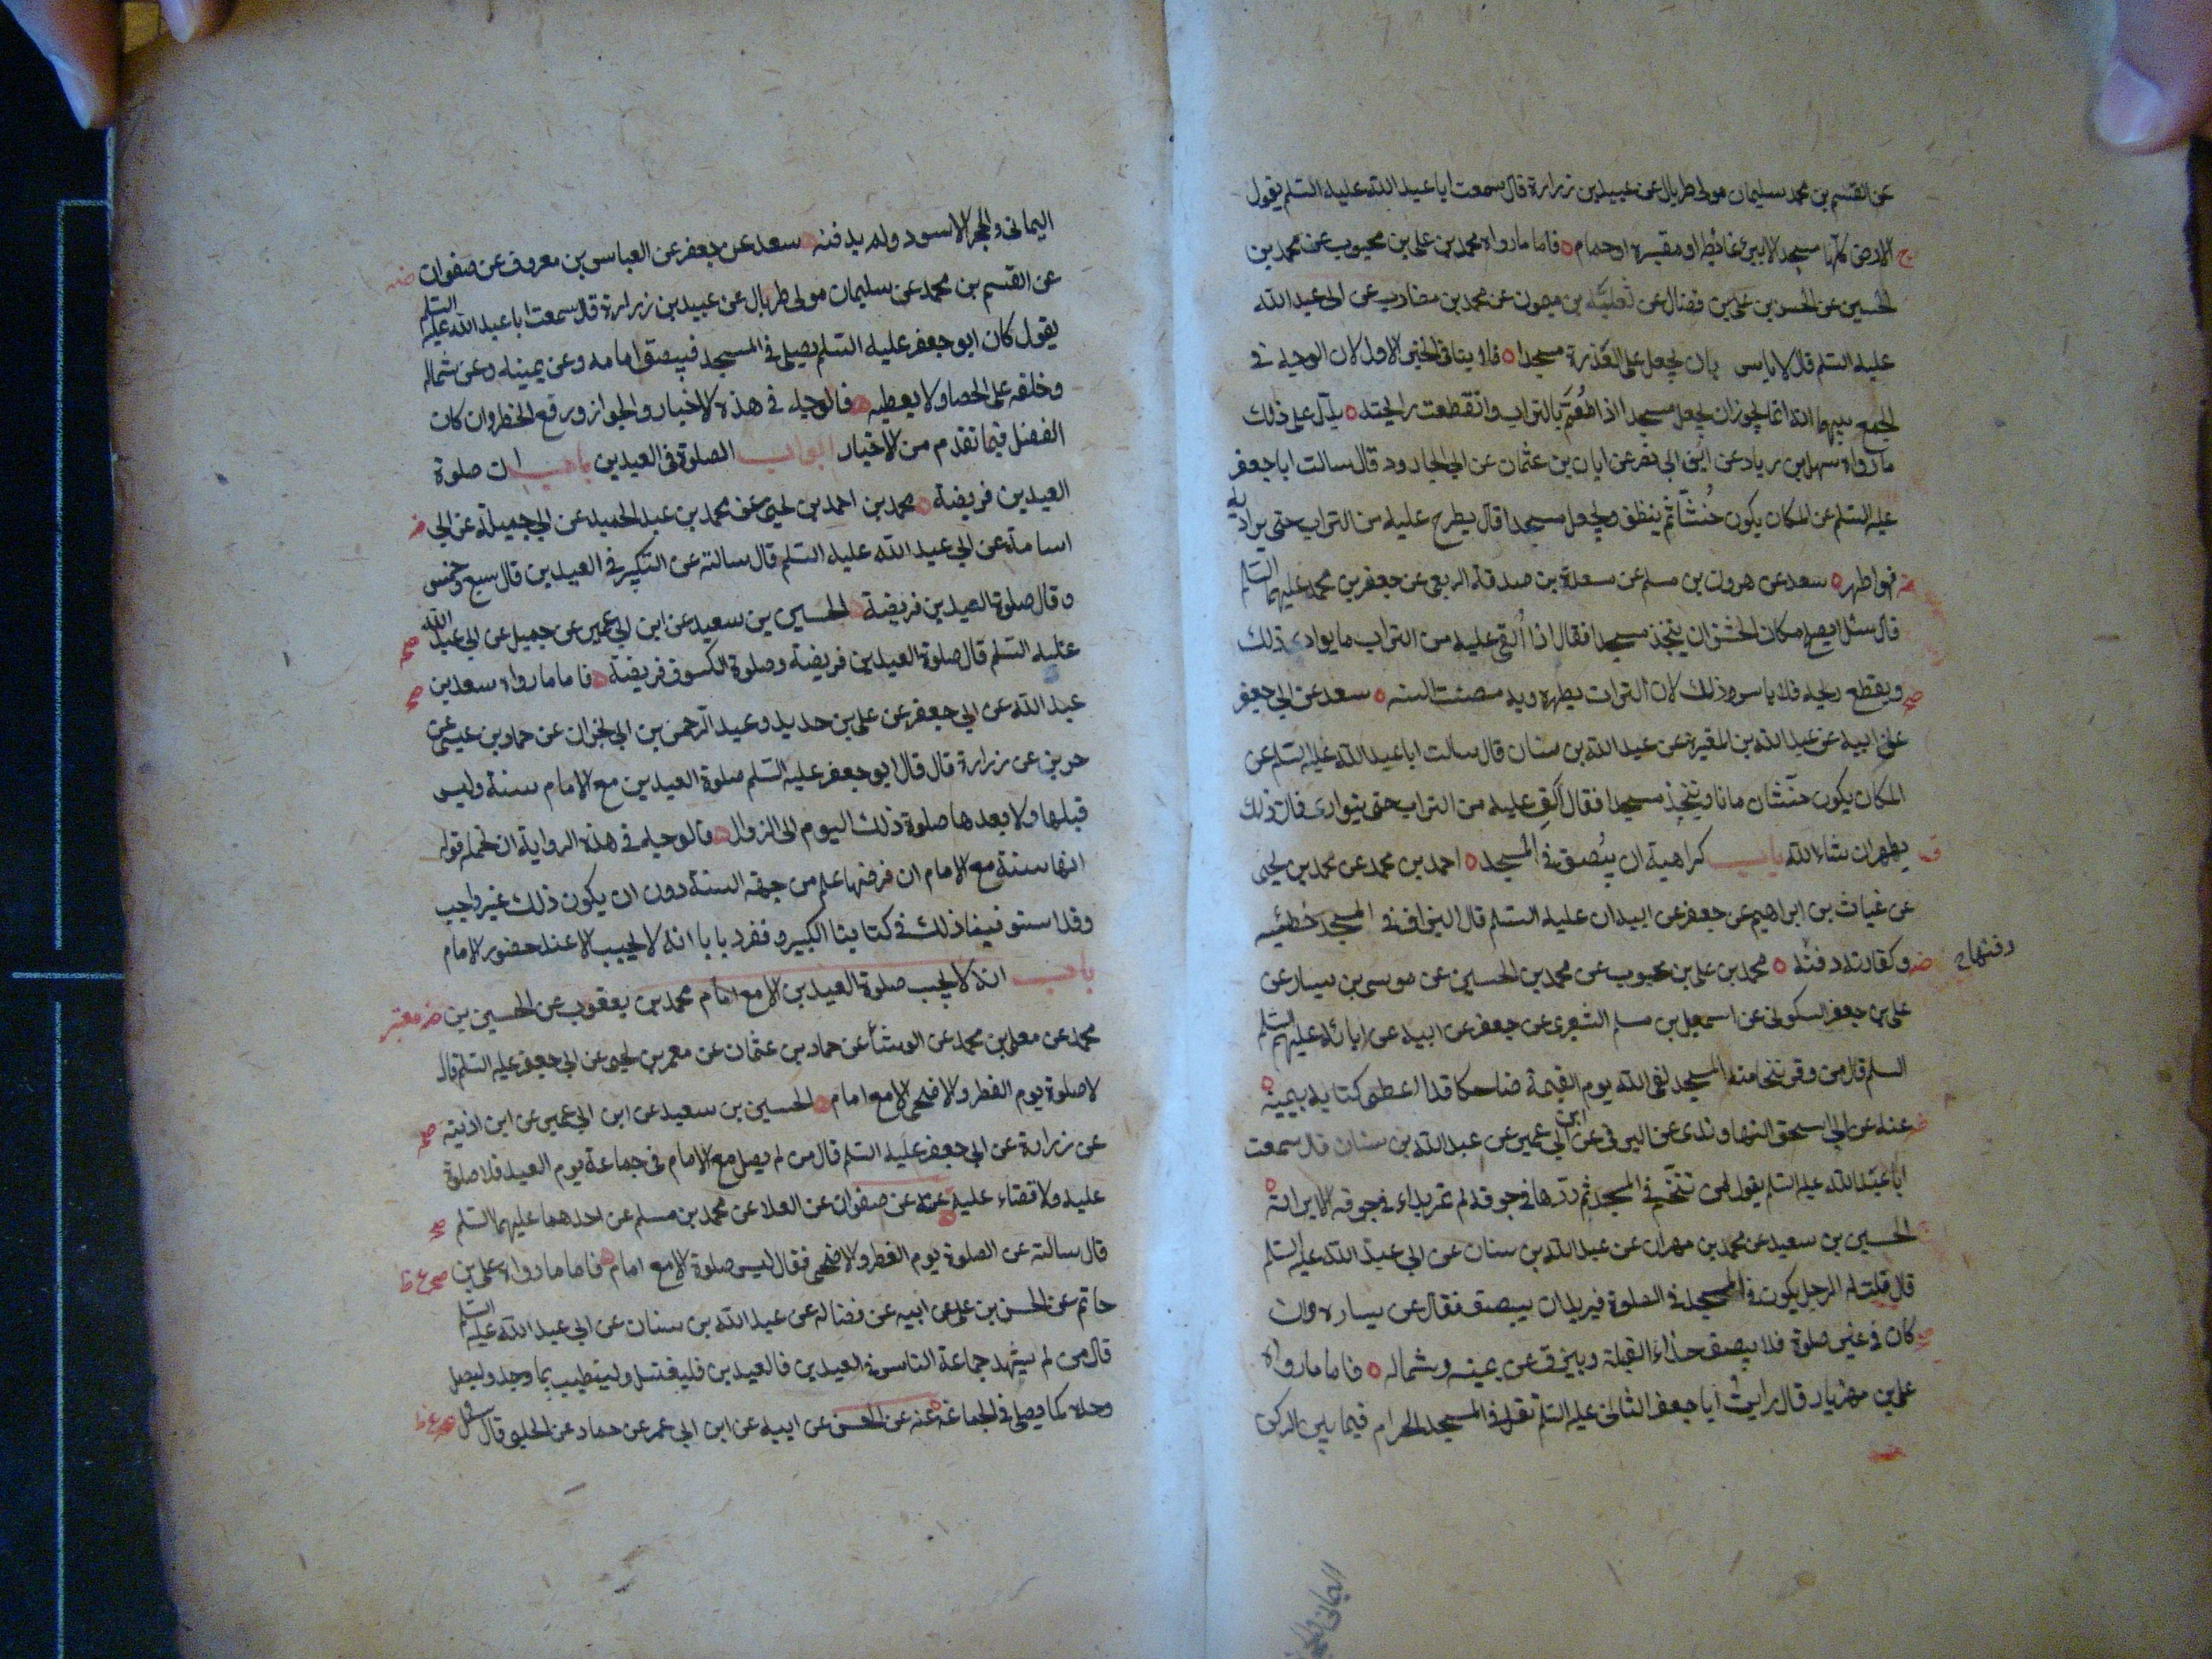 عن القسم بن محمد سليمان مولى طربال عن عبيد بن زرارة قال سمعت ابا عبد الله عليه السلم يقول
الارض كلها مسجد الا بير غائط او مقبرة او حمام فاما ما رواه محمد بن على بن محبوب عن محمد بن
الحسين عن الحسن بن على بن فضال عن ثعلبة بن ميمون عن محمد بن مضارب عن ابى عبد الله
عليه السلم قال لا باس بان يجعل على العذرة مسجدا فلا ينافى الخبر الاول لان الوجه فى
الجمع بينهما انه انما يجوز ان يجعل مسجدا اذا طُمّت بالتراب وانقطعت رايحته يدل على ذلك
ما رواه سهل بن زياد عن ابن ابى نصر عن ابان بن عثمان عن ابى الجارود قال سالت ابا جعفر
عليه السلم عن المكان يكون حُشّاً ثم ينظف ويجعل مسجدا قال يطرح عليه من التراب حتى يواريه
فهو اطهر سعد عن هرون بن مسلم عن مسعدة بن صدقة الربعى عن جعفر بن محمد عليهما السلم
قال سئل ايصلح مكان الحش ان يتخذ مسجدا فقال اذا اُلقى عليه من التراب ما يوارى ذلك
ويقطع ريحه فلا باس وذلك لان التراب يطهره وبه مضت السنه سعد عن ابى جعفر
عن ابيه عن عبد الله بن المغيرة عن عبد الله بن سنان قال سالت ابا عبد الله عليه السلم عن
المكان يكون حشّا زمانا ويتخذ مسجدا فقال الق عليه من التراب حتى يتوارى فان ذلك
يطهر ان شاء الله باب كراهية ان يُبصق فى المسجد احمد بن محمد عن محمد بن يحيى
عن غياث بن ابراهيم عن جعفر عن ابيه ان عليه السلم قال البزاق فى المسجد خطيئه
وكفارته دفنه محمد بن على بن محبوب عن محمد بن الحسين عن موسى بن يسار عن
دفنها ح
على بن جعفر السكونى عن اسمعيل بن مسلم الشعيرى عن جعفر عن ابيه عن ابائه عليهم السلم
السلم قال من وقر بنخامته المسجد لقى الله يوم القيمة ضاحكا قد اعطى كتابه بيمينه
عنه عن ابى اسحق النهاوندى عن البرقى عن ابن ابى عمير عن عبد الله بن سنان قال سمعت
ابا عبد الله عليه السلم يقول من تنخّم فى المسجد ثم ردّها فى جوفه لم تمر بداء فى جوفه الا ابراته
الحسين بن سعيد عن محمد بن مهران عن عبد الله بن سنان عن ابى عبد الله عليه السلم
قال قلت له الرجل يكون فى المسجد فى الصلوة فيريد ان يبصق فقال عن يساره وان
كان فى غير صلوة فلا يبصق حذاء القبلة ويبزق عن يمينه وشماله فاما ما رواه
على بن مهزيار قال رايت ابا جعفر الثانى عليه السلم تفل فى المسجد الحرام فيما بين الركن
اليمانى والحجر
اليمانى والحجر الاسود ولم يدفنه سعد عن جعفر عن العباس بن معروف عن صفوان
عن القسم بن محمد عن سليمان مولى طربال عن عبيد بن زرارة قال سمعت ابا عبد الله عليه السلم
يقول كان ابو جعفر عليه السلم يصلى فى المسجد فيبصق امامه وعن يمينه وعن شماله
وخلفه على الحصا ولا يغطيه فالوجه فى هذه الاخبار والجواز ورفع الحظر وان كان
الفضل فيما تقدم من الاخبار ابواب الصلوة فى العيدين باب ان صلوة
العيدين فريضة محمد بن احمد بن يحيى عن محمد بن عبد الحميد عن ابى جميلة عن ابى
اسامة عن ابى عبد الله عليه السلم قال سالته عن التكبير فى العيدين قال سبع وخمس
وقال صلوة العيدين فريضة الحسين بن سعيد عن ابن ابى عمير عن جميل عن ابى عبد الله
عليه السلم قال صلوة العيدين فريضة وصلوة الكسوف فريضة فاما ما رواه سعد بن
عبد الله عن ابى جعفر عن على بن حديد وعبد الرحمن بن ابى نجران عن حماد بن عيسى عن
حريز عن زرارة قال قال ابو جعفر عليه السلم صلوة العيدين مع الامام سنة وليس
قبلها ولا بعدها صلوة ذلك اليوم الى الزوال فالوجه فى هذه الرواية ان نحمل قوله
انها سنة مع الامام ان فرضها علم من جهة السنة دون ان يكون ذلك غير واجب
وقد استوفينا ذلك فى كتابنا الكبير ونفرد بابا انه لا يجب الا عند حضور الامام
باب انه لا يجب صلوة العيدين الا مع امام محمد بن يعقوب عن الحسين بن
محمد عن معلى بن محمد عن الوشاء عن حماد بن عثمان عن معمر بن يحيى عن ابى جعفر عليه السلم قال
لا صلوة يوم الفطر والاضحى الا مع امام الحسين بن سعيد عن ابن ابى عمير عن ابن اذينه
عن زرارة عن ابى جعفر عليه السلم قال من لم يصل مع الامام فى جماعة يوم العيد فلا صلوة
عليه ولا قضاء عليه عنه عن صفوان عن العلا عن محمد بن مسلم عن احدهما عليهما السلم
قال سالته عن الصلوة يوم الفطر والاضحى فقال ليس صلوة الا مع امام فاما ما رواه على بن
حاتم عن الحسن بن على عن ابيه عن فضالة عن عبد الله بن سنان عن ابى عبد الله عليه السلم
قال من لم يشهد جماعة الناس فى العيدين فالعيدين فليغتسل وليتطيب بما وجد وليصل
وحده كما يصلى فى الجماعة عنه عن الحسن عن ابيه عن ابن ابى عمر عن حماد عن الحلبى قال سئل